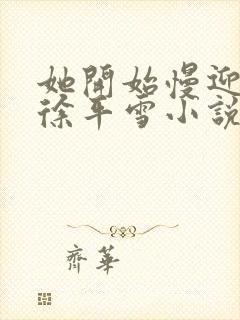 她開始慢迎
徐平雪小說
齊華